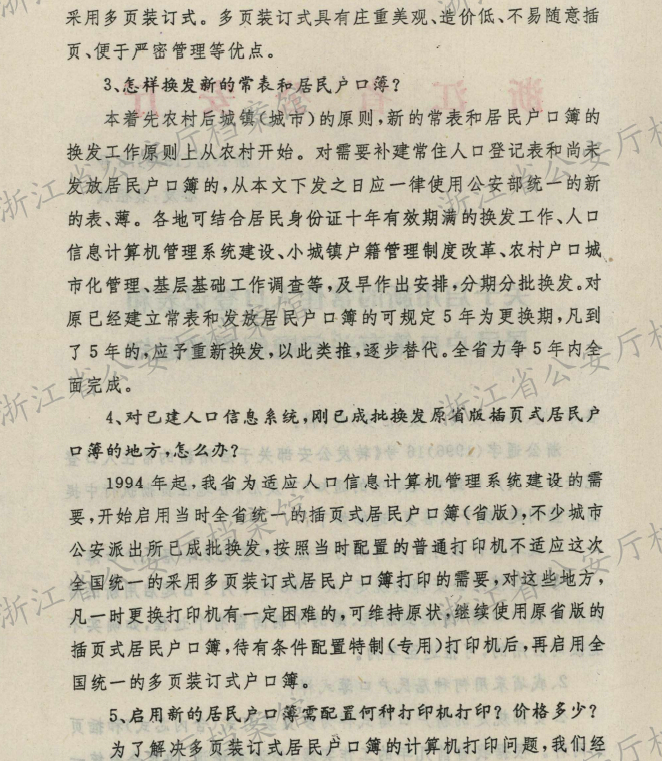 采用多页装订式。多页装订式具有庄重美观、造价低、不易随意插
页、便于严密管理等优点。
3、怎样换发新的常表和居民户口簿?
本着先农村后城镇(城市)的原则,新的常表和居民户口簿的
换发工作原则上从农村开始。对需要补建常住人口登记表和尚未
发放居民户口簿的,从本文下发之日应一律使用公安部统一的新
的表、薄。各地可结合居民身份证十年有效期满的换发工作、人口
信息计算机管理系统建设、小城镇户籍管理制度改革、农村户口城
市化管理、基层基础工作调查等,及早作出安排,分期分批换发。对
原已经建立常表和发放居民户口簿的可规定5年为更换期,凡到
了5年的,应予重新换发,以此类推,逐步替代。全省力争5年内全
面完成。
4、对已建人口信息系统,刚已成批换发原省版插页式居民户
口簿的地方,怎么办?
1994年起,我省为适应人口信息计算机管理系统建设的需
要,开始启用当时全省统一的插页式居民户口簿(省版),不少城市
公安派出所已成批换发,按照当时配置的普通打印机不适应这次
全国统一的采用多页装订式居民户口簿打印的需要,对这些地方,
凡一时更换打印机有一定困难的,可维持原状,继续使用原省版的
插页式居民户口簿,待有条件配置特制(专用)打印机后,再启用全
国统一的多页装订式户口簿。
5、启用新的居民户口簿需配置何种打印机打印?价格多少?
为了解决多页装订式居民户口簿的计算机打印问题,我们经
浙江省公安厅档案馆